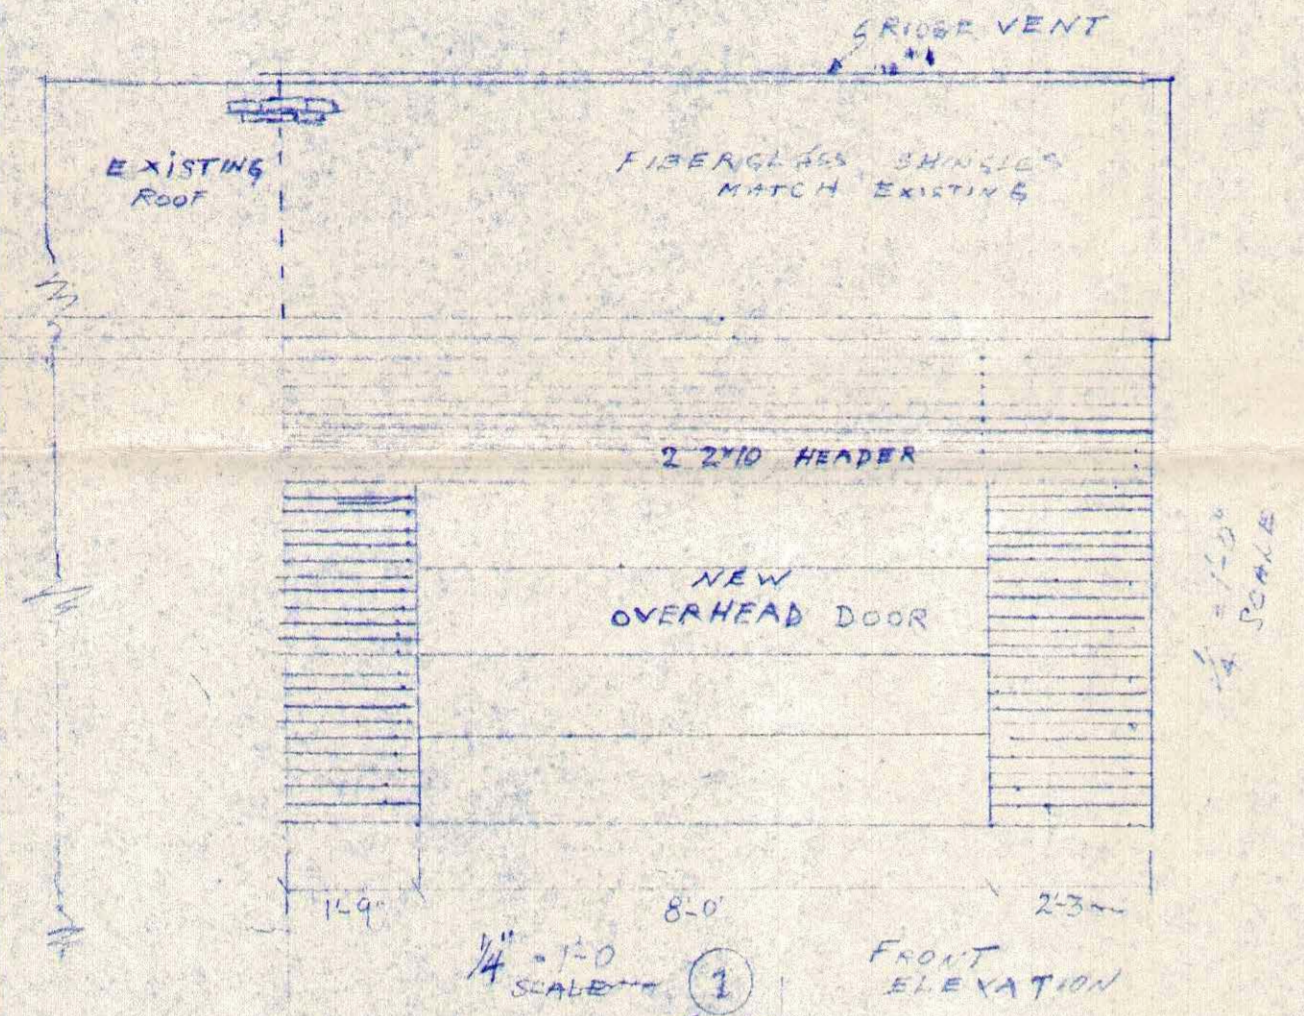 RIDGE VENT
EXISTING
ROOF
FIBERGLASS SHINGLES
MATCH EXISTING
2 2x10 HEADER
NEW
OVERHEAD DOOR
1/4" = 1'-0"
SCALE
1'-9"
8'-0"
2'-3"
1/4" = 1'-0
SCALE
1
FRONT
ELEVATION